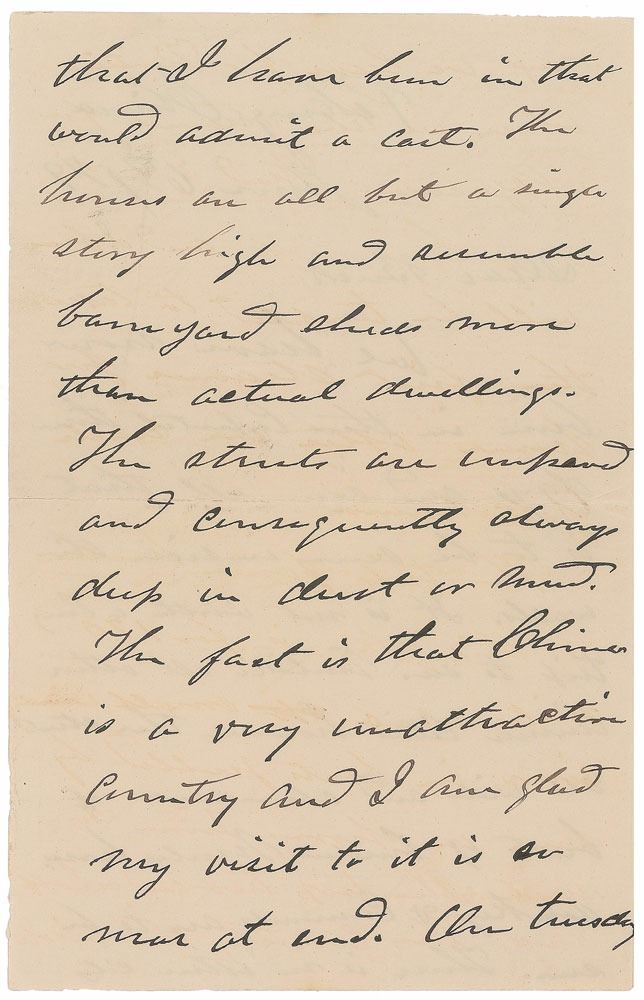 that I have been in that
would admit a cart. The
houses are all but a single
story high and resemble
barn yard sheds more
than actual dwellings.
The streets are unpaved
and consequently always
deep in dust or mud.
The fact is that China
is a very unattractive
country and I am glad
my visit to it is so
near at end. On tuesday